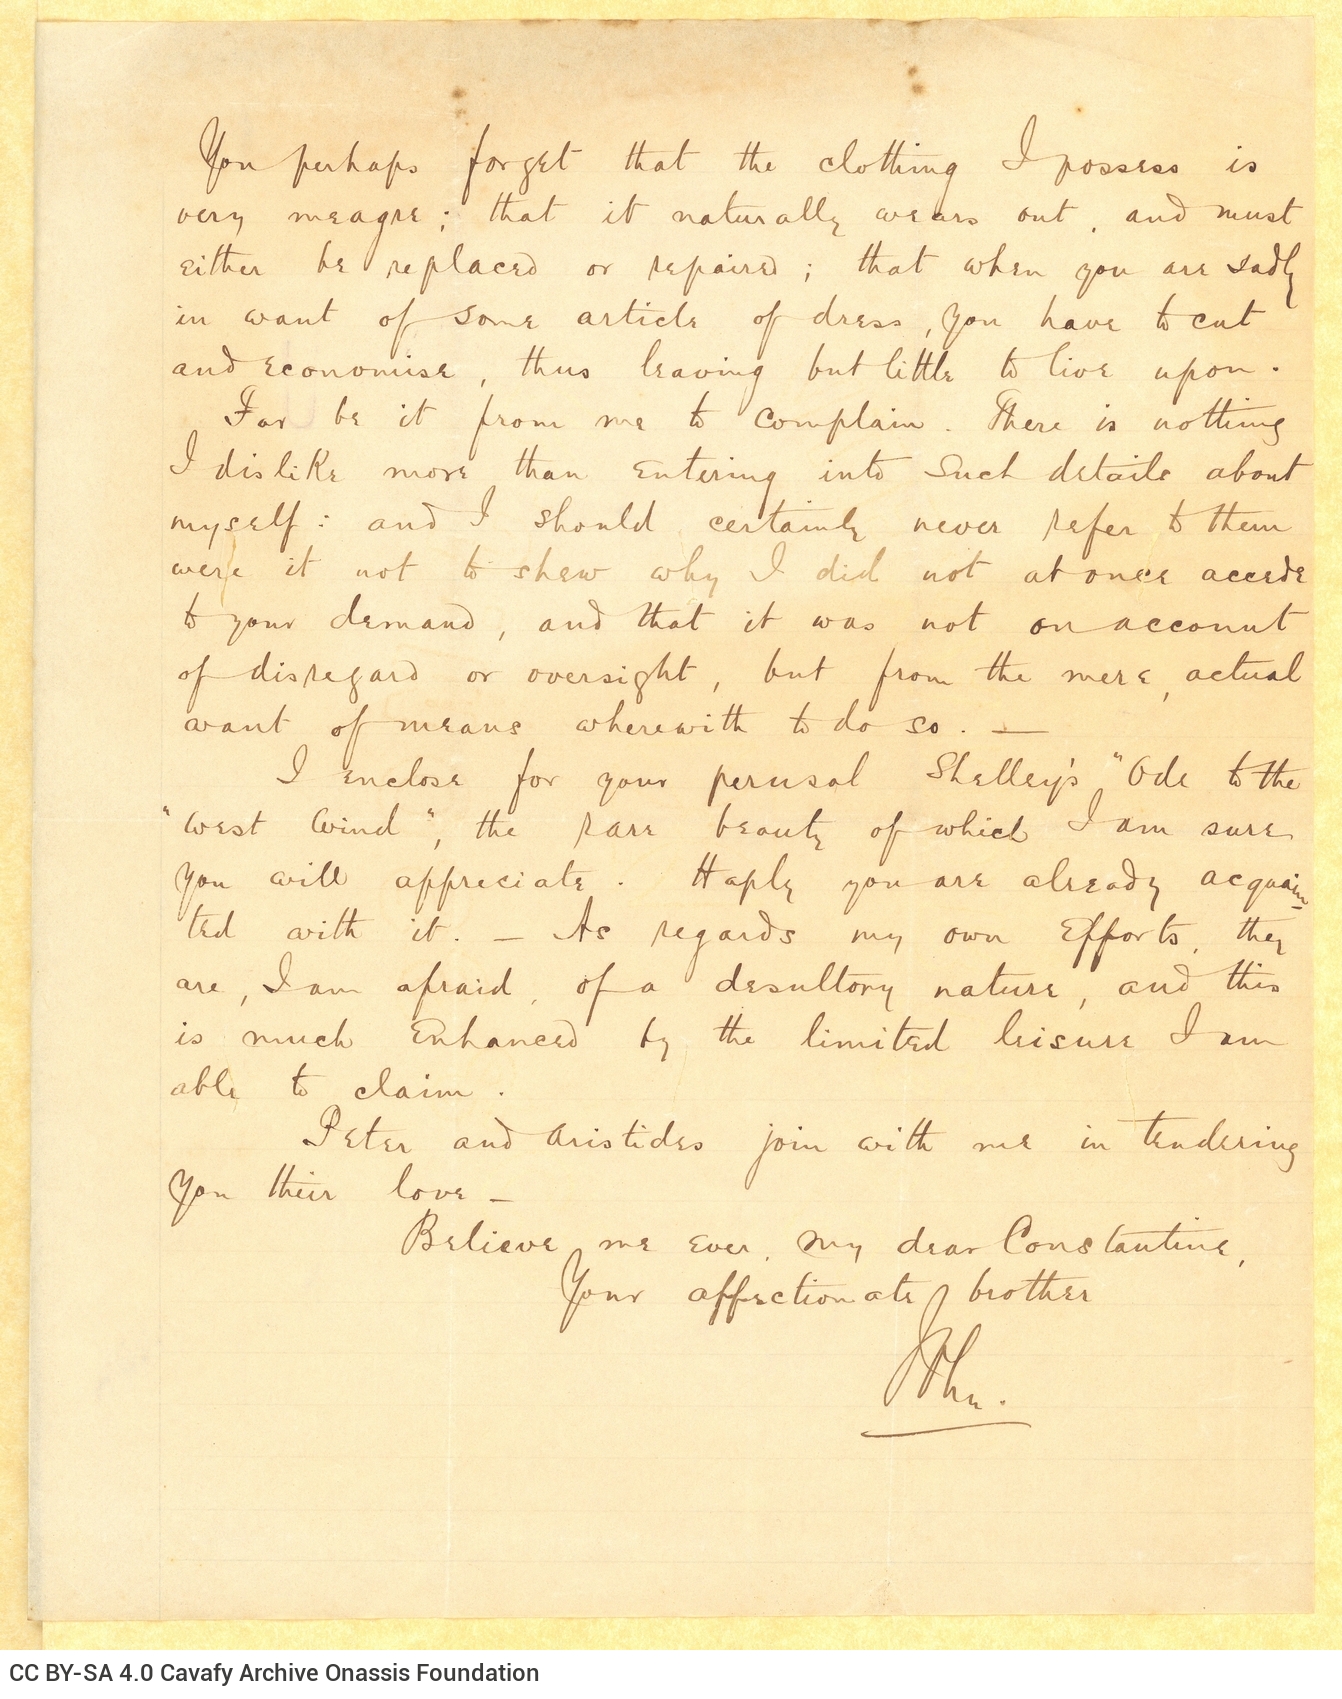 You perhaps forget that the clothing I possess is
very meagre; that it naturally wears out, and must
either be replaced or repaired; that when you are sadly
in want of some article of dress, you have to cut
and economise, thus leaving but little to live upon.
Far be it from me to complain. There is nothing
I dislike more than entering into such details about
myself: and I should certainly never refer to them
were it not to shew why I did not at once accede
to your demand, and that it was not on account
of disregard or oversight, but from the mere, actual
want of means wherewith to do so. —
I enclose for your perusal Shelley's "Ode to the
"West Wind", the rare beauty of which I am sure
you will appreciate. Haply you are already acquain-
ted with it. — As regards my own efforts, they
are, I am afraid, of a desultory nature, and this
is much enhanced by the limited leisure I am
able to claim.
Peter and Aristides join with me in tendering
you their love —
Believe me ever, my dear Constantine,
Your affectionate brother
John.
CC BY-SA 4.0 Cavafy Archive Onassis Foundation